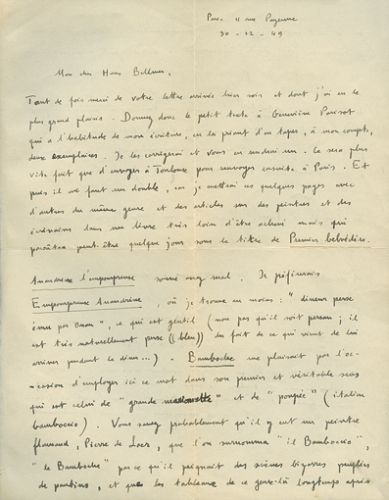 Paris 11 rue Payenne
30-12-49
Mon cher Hans Bellmer,
Tant de fois merci de votre lettre arrivée hier soir et dont j'ai eu le
plus grand plaisir. Donnez donc le petit texte à Geneviève
qui a l'habitude de mon écriture, en la priant d'en taper, à mon compte,
deux exemplaires. Je les corrigerai et vous en rendrai un. Ce sera plus
vite fait que d'envoyer à Toulouse pour renvoyer ensuite à Paris. Et
puis il me faut un double, car je mettrai ces quelques pages avec
d'autres du même genre et des articles sur des peintres et des
écrivains dans un livre très loin d'être achevé mais qui
paraîtra peut-être quelque jour sous le titre de Premier belvédère.
sonne assez mal. Je préférerais
, où je trouve au moins : "
ému par ", ce qui est gentil (non pas qu'il soit ; il
est très naturellement (bleu) du fait de ce qui vient de lui
arriver pendant le dîner...). Bamboche me plaisait par l'oc-
-casion d'employer ici ce mot dans son premier et véritable sens
qui est celui de "grande marionnette" et de "poupée" (italien
bamboccio). Vous savez probablement qu'il y eut un peintre
flamand, Pierre de Laer, que l'on surnomma "il Bamboccio",
"le Bamboche" parce qu'il peignait des scènes bizarres peuplées
de pantins, et que les tableaux de ce genre-là longtemps après